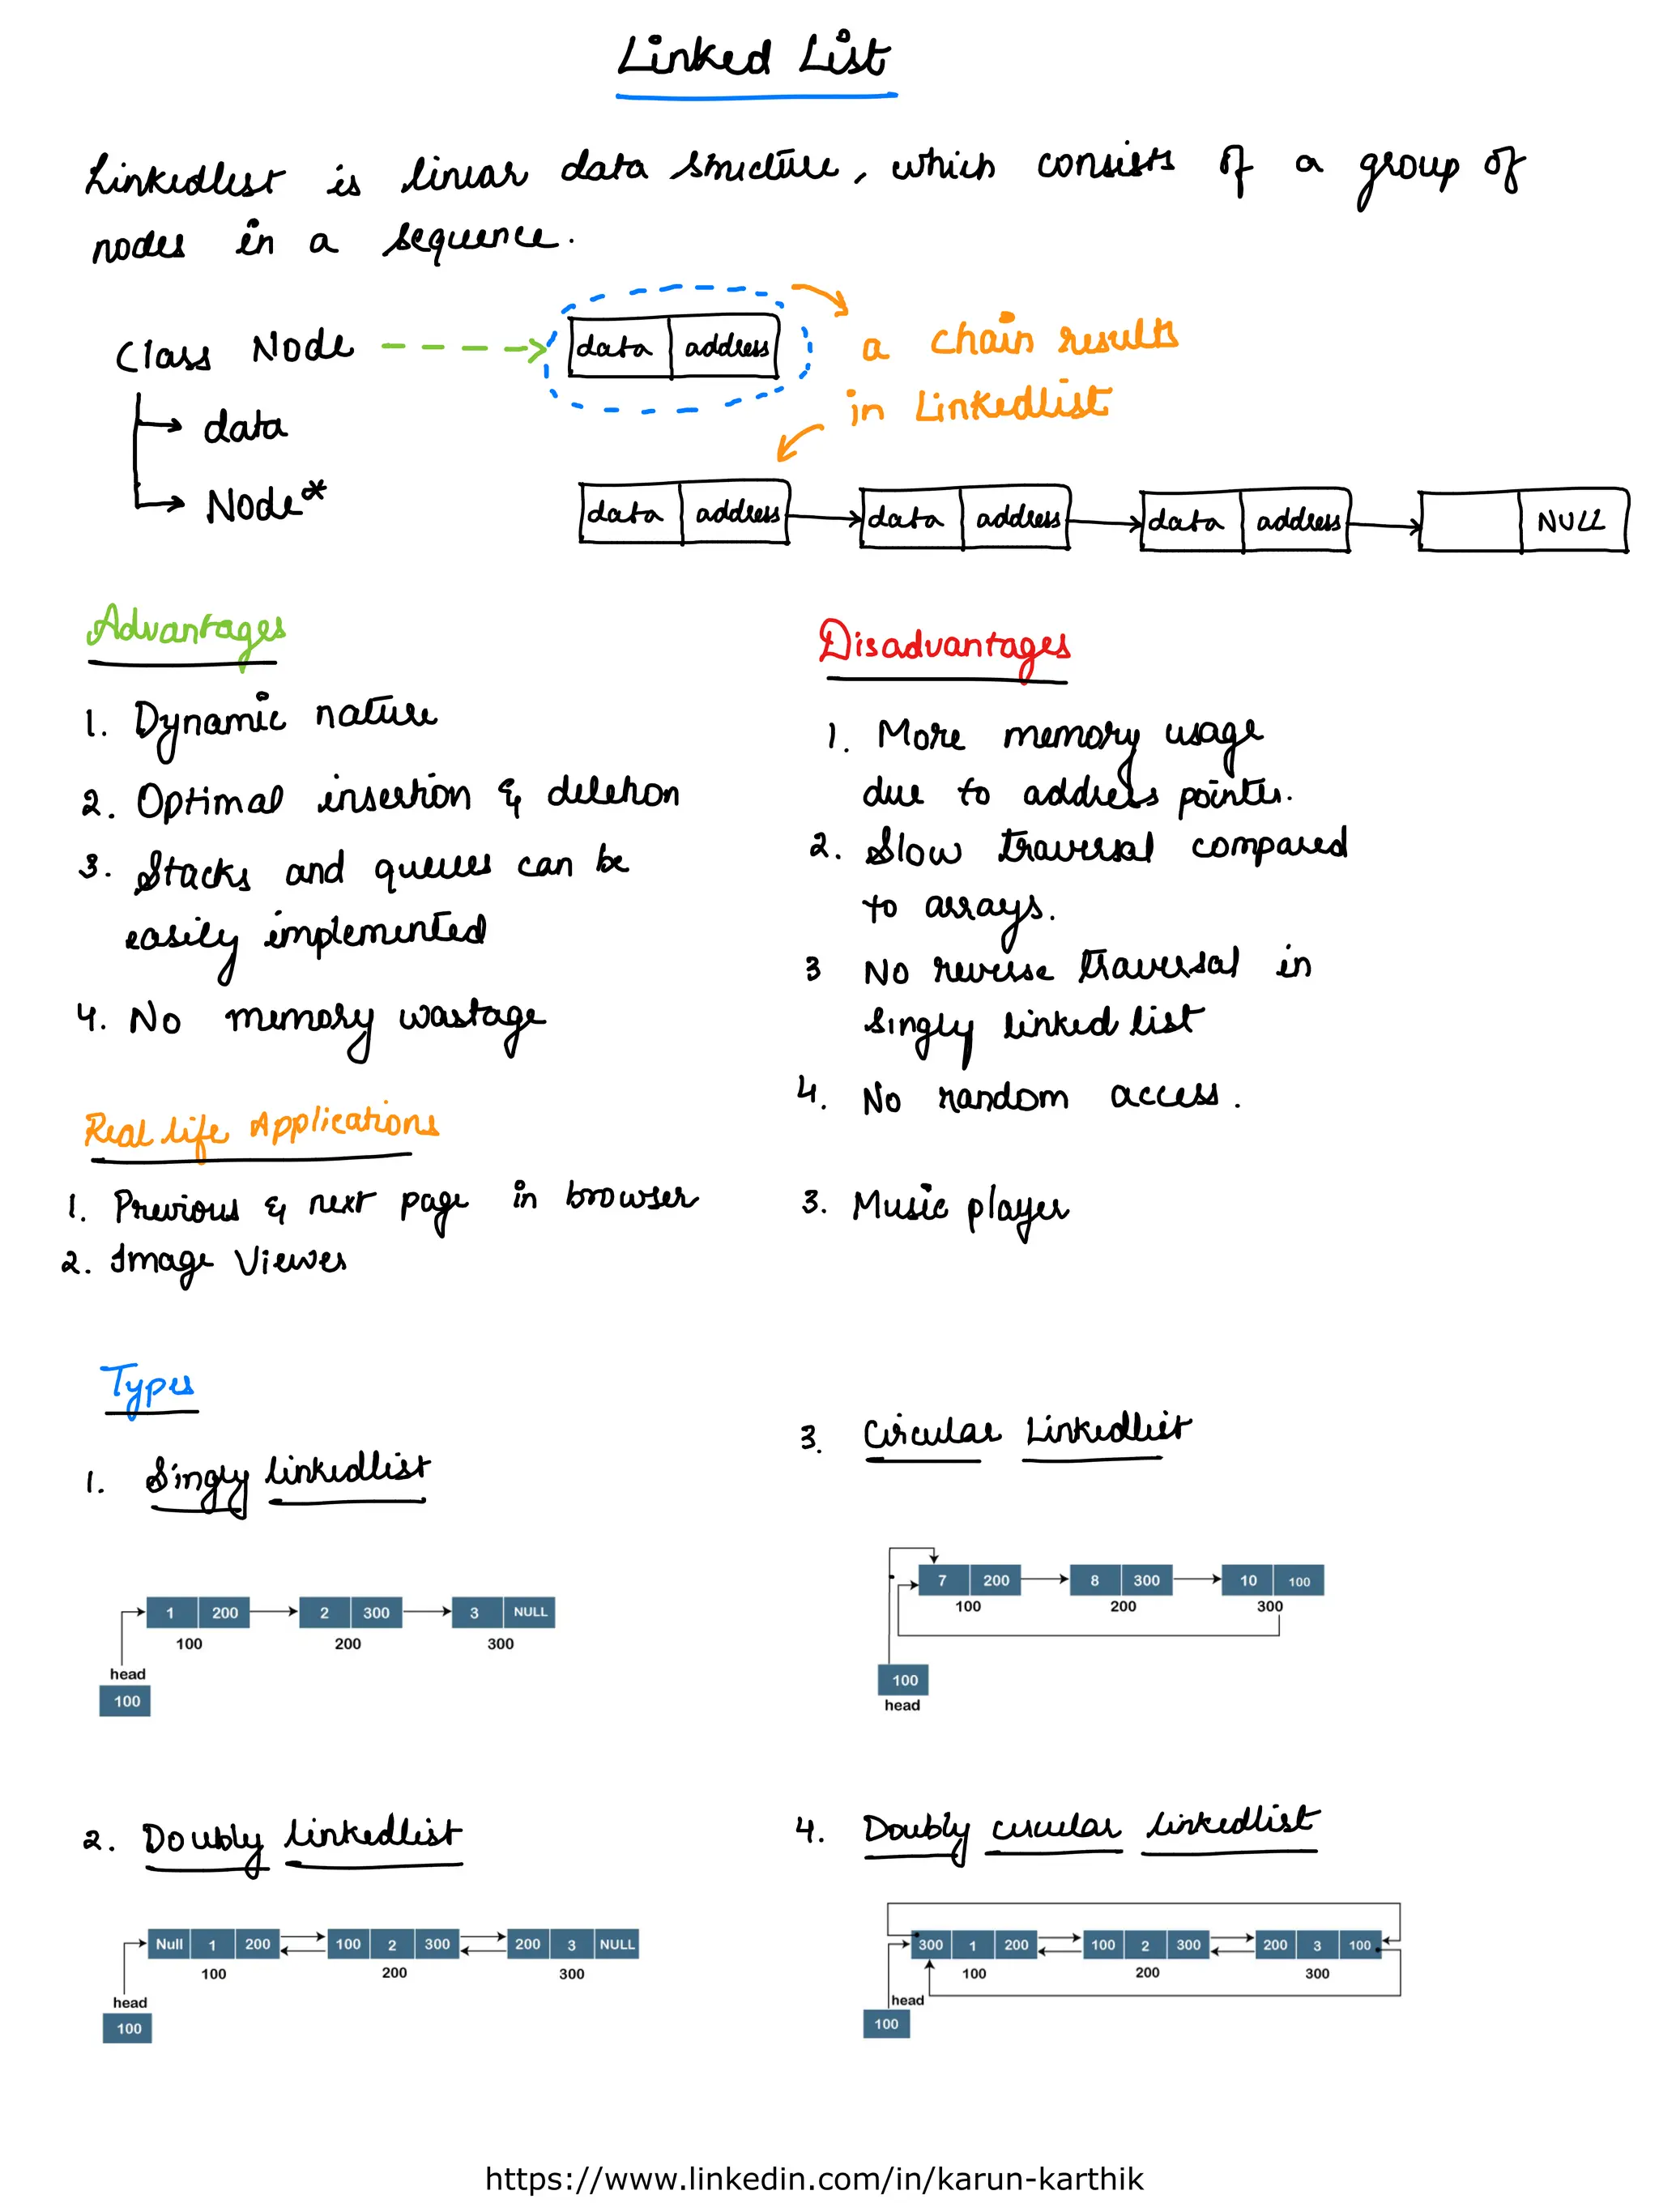 Linked List
Linkedlist is linear data structure, which consists of a group of
nodes in a sequence.
Class Node
data
Node*
data address
a chain results
in Linkedlist
data address data address data address NULL
Advantages
1. Dynamic nature
2. Optimal insertion & deletion
3. Stacks and queues can be
easily implemented
4. No memory wastage
Disadvantages
1. More memory usage
due to address pointer.
2. Slow traversal compared
to arrays.
3 No reverse traversal in
Singly linked list
4. No random access.
Real life Applications
1. Previous & next page in browser
2. Image Viewer
3. Music player
Types
1. Singly linkedlist
1 200 2 300 3 NULL
100 200 300
head
100
2. Doubly linkedlist
Null 1 200 100 2 300 200 3 NULL
100 200 300
head
100
3. Circular Linkedlist
7 200 8 300 10 100
100 200 300
100
head
4. Doubly circular linkedlist
300 1 200 100 2 300 200 3 100
100 200 300
head
100
https://www.linkedin.com/in/karun-karthik